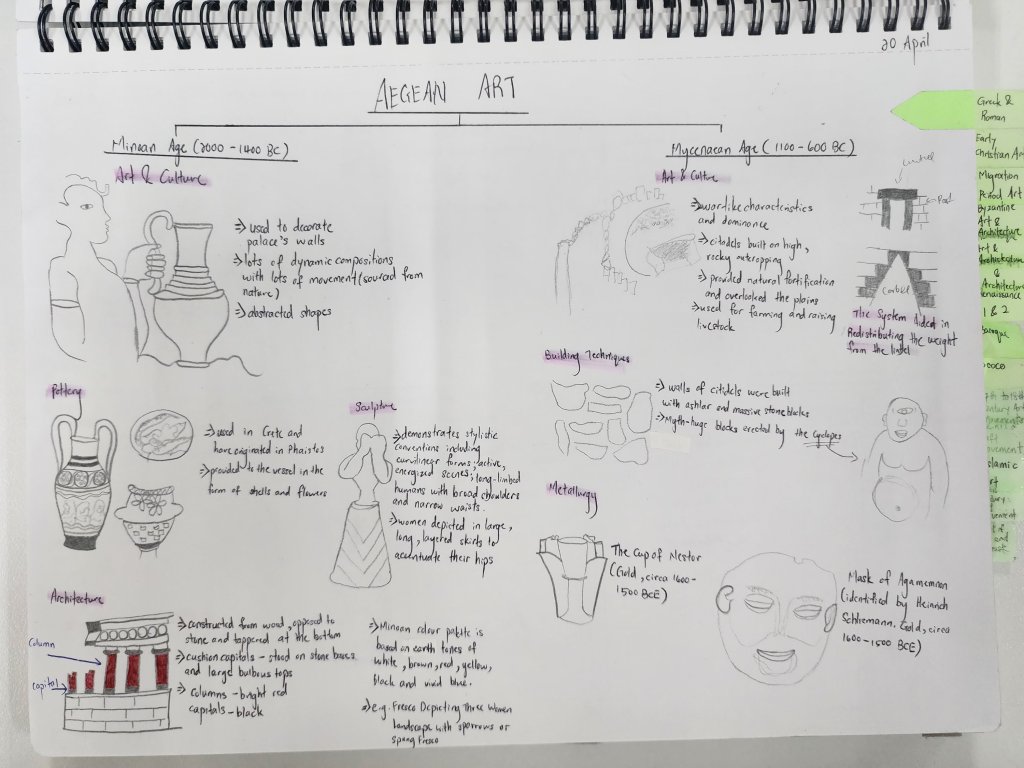 20 April
AEGEAN ART
Minoan Age (2000 - 1400 BC)
Art & Culture
⇒ used to decorate
palace's walls
⇒ lots of dynamic compositions
with lots of movement (sourced from
nature)
⇒ abstracted shapes
Pottery
⇒ used in Crete and
have originated in Phaistos
⇒ provided to the vessel in the
form of shells and flowers
Sculpture
⇒ demonstrates stylistic
conventions including
curvilinear forms, active,
energized scenes, long-limbed
humans with broad shoulders
and narrow waists.
⇒ women depicted in large,
long, layered skirts to
accentuate their hips
Architecture
column
capital
⇒ constructed from wood, opposed to
stone and tappered at the bottom
⇒ cushion capitals - stood on stone bases
and large bulbous tops
⇒ columns - bright red
capitals - black
⇒ Minoan colour palette is
based on earth tones of
white, brown, red, yellow,
black and vivid blue.
⇒ e.g. Fresco Depicting Three Women
landscape with sparrows or
spring fresco
Mycenaean Age (1100 - 600 BC)
Art & Culture
⇒ warlike characteristics
and dominance
⇒ citadels built on high,
rocky outcropping
⇒ provided natural fortification
and overlooked the plains
⇒ used for farming and raising
livestock
Lintel
Post
Corbel
The System Aided in
Redistributing the weight
from the lintel
Building Techniques
⇒ walls of citadels were built
with ashlar and massive stone blocks
⇒ Myth-huge blocks erected by the Cyclopes
Metallurgy
The Cup of Nestor
(Gold, circa 1600 -
1500 BCE)
Mask of Agamemnon
(identified by Heinrich
Schliemann. Gold, circa
1600 - 1500 BCE)
Greek &
Roman
Early
Christian Art
Migration
Period Art
Byzantine
Art &
Architecture
Art &
Architecture
&
Architecture
Renaissance
1 & 2
Baroque